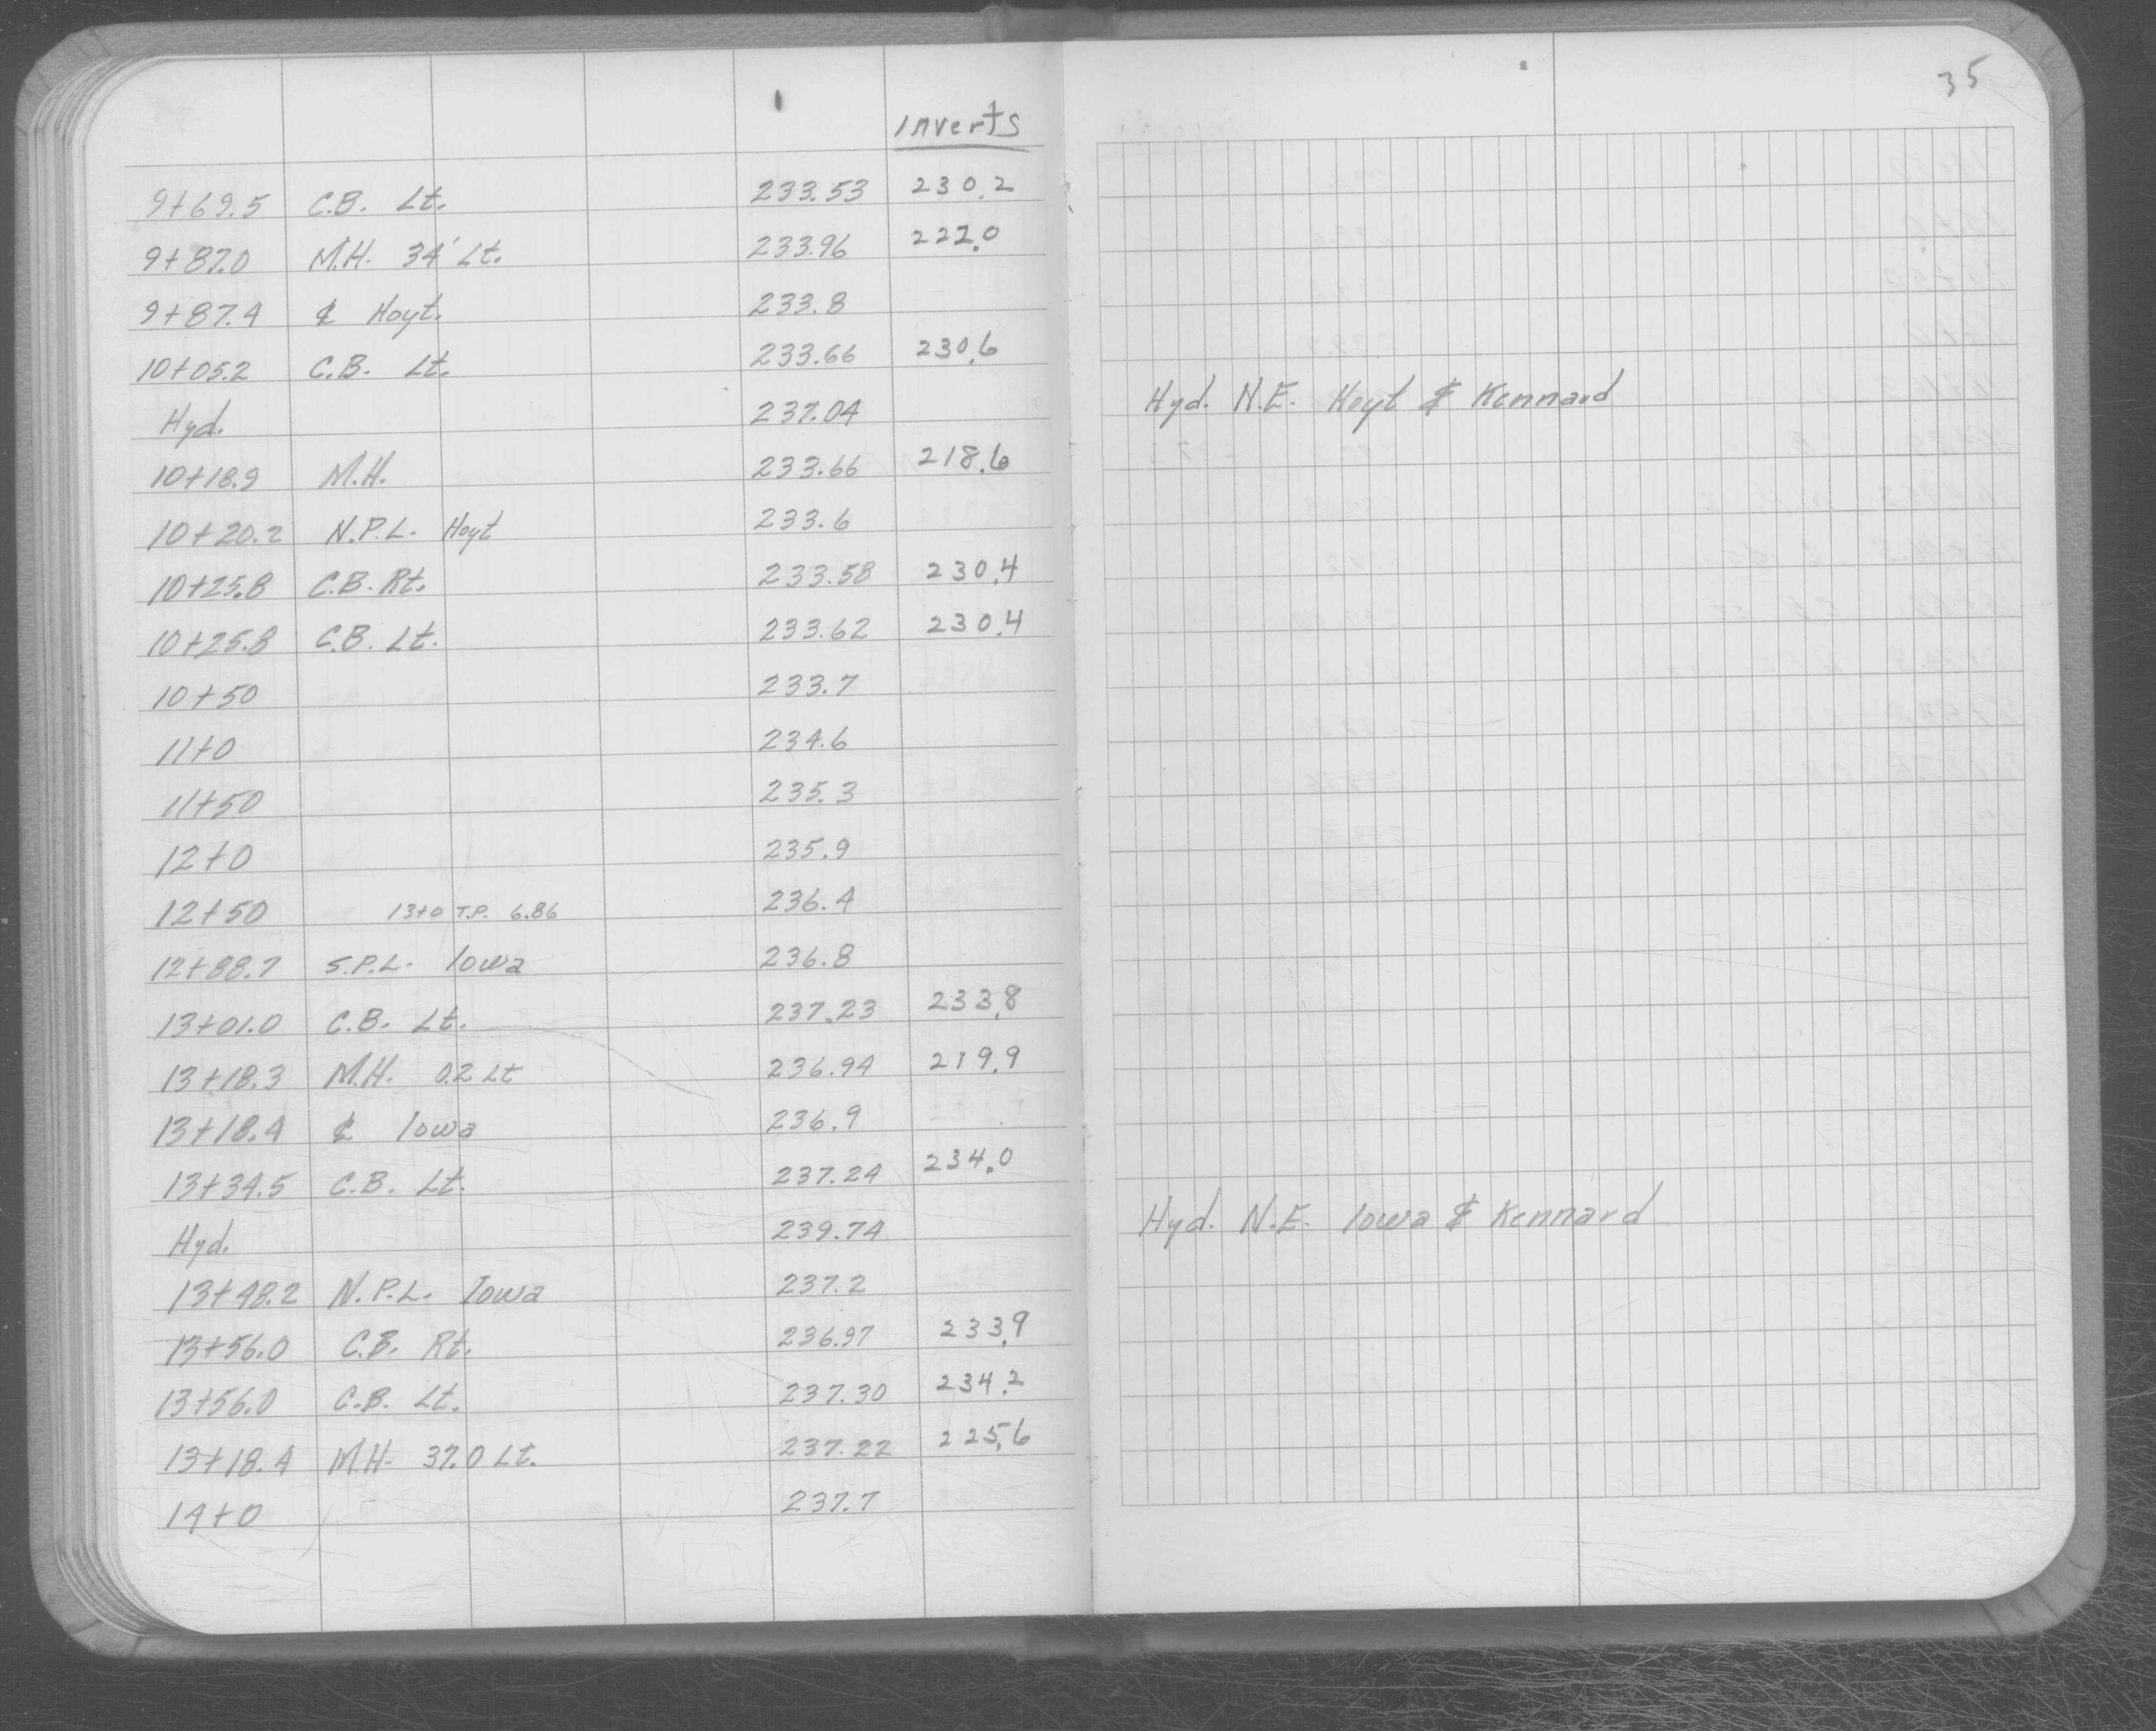 35
Inverts
9+69.5 C.B. Lt. 233.53 230.2
9+87.0 M.H. 34' Lt. 233.96 222.0
9+87.4 ℄ Hoyt. 233.8
10+05.2 C.B. Lt. 233.66 230.6
Hyd. 237.04 Hyd. N.E. Hoyt & Kennard
10+18.9 M.H. 233.66 218.6
10+20.2 N.P.L. Hoyt 233.6
10+25.8 C.B. Rt. 233.58 230.4
10+25.8 C.B. Lt. 233.62 230.4
10+50 233.7
11+0 234.6
11+50 235.3
12+0 235.9
12+50 13+0 T.P. 6.86 236.4
12+88.7 S.P.L. Iowa 236.8
13+01.0 C.B. Lt. 237.23 233.8
13+18.3 M.H. 0.2 Lt 236.94 219.9
13+18.4 ℄ Iowa 236.9
13+34.5 C.B. Lt. 237.24 234.0
Hyd. 239.74 Hyd. N.E. Iowa & Kennard
13+48.2 N.P.L. Iowa 237.2
13+56.0 C.B. Rt. 236.97 233.9
13+56.0 C.B. Lt. 237.30 234.2
13+18.4 M.H. 37.0 Lt. 237.22 225.6
14+0 237.7